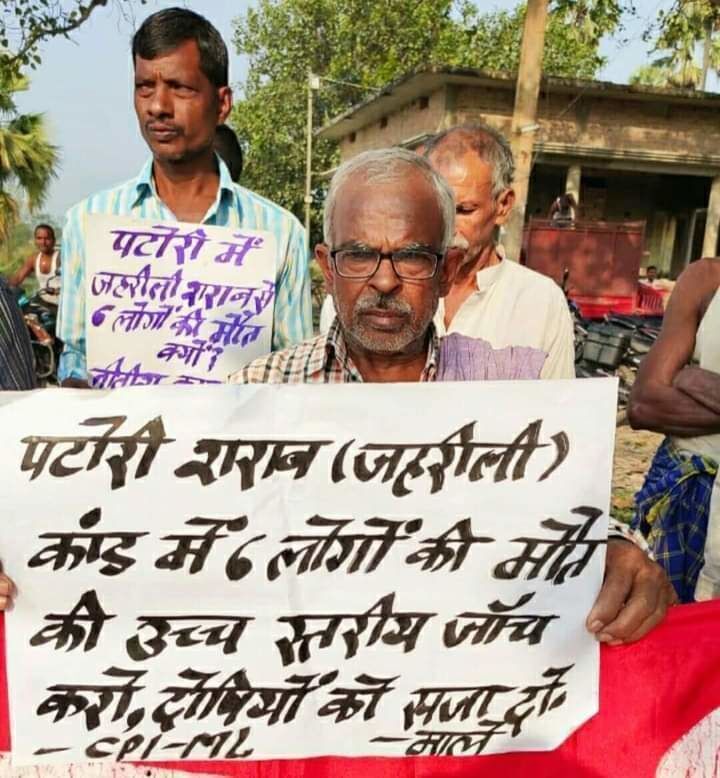 पटोरी में
जहरीली शराब से
6 लोगों की मौत
क्यों?
नीतीश
पटोरी शराब (जहरीली)
कांड में 6 लोगों की मौत
की उच्च स्तरीय जाँच
करो, दोषियों को सजा दो.
- CPI-ML - माले